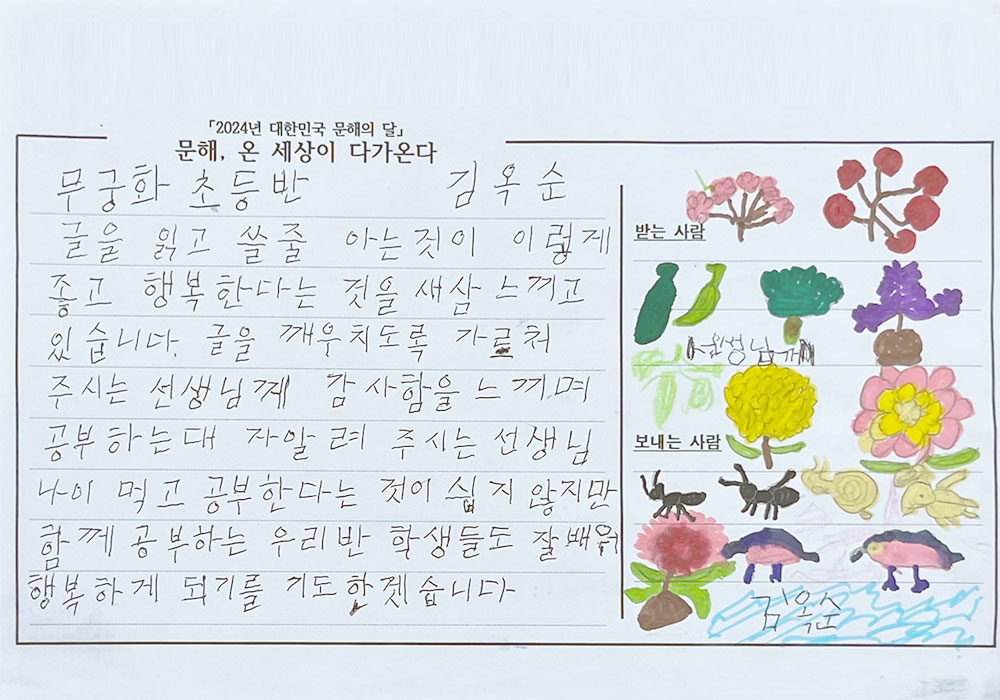 「2024년 대한민국 문해의 달」
문해, 온 세상이 다가온다
무궁화 초등반 김옥순
글을 읽고 쓸줄 아는것이 이렇게
좋고 행복한다는 것을 새삼 느끼고
있습니다. 글을 깨우치도록 가르처
주시는 선생님께 감사함을 느끼며
공부하는대 자알려 주시는 선생님
나이 먹고 공부한다는 것이 쉽지 않지만
함께 공부하는 우리반 학생들도 잘배워
행복하게 되기를 기도한겠습니다
받는 사람
선생님께
보내는 사람
김옥순